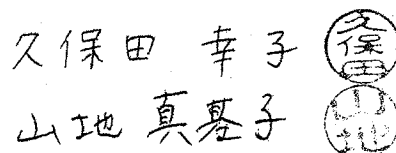 久保田 幸子 久保田
山地 真基子 山地